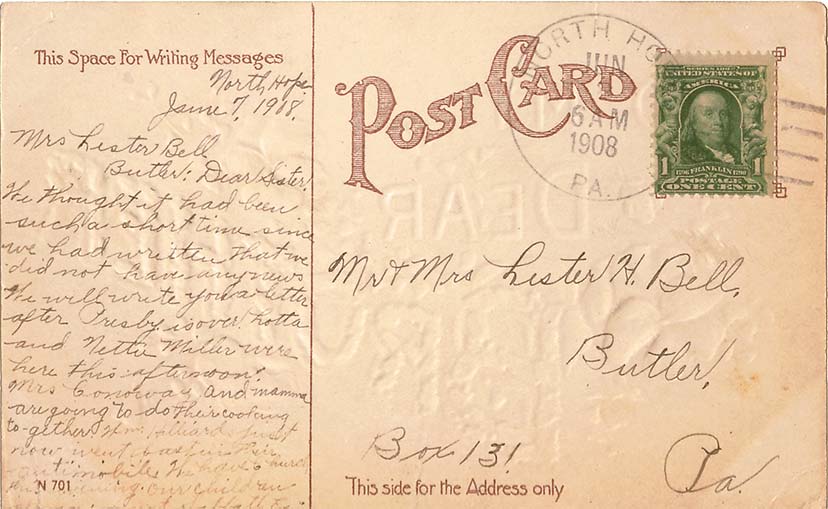 This Space For Writing Messages
North Hope
June 7, 1908,
Mrs Lester Bell
Butler: Dear Sister,
We thought it had been
such a short time since
we had written that we
did not have any news
We will write you a letter
after Presby. is over. Lotta
and Nettie Miller were
here this afternoon.
Mrs Conoway and mamma
are going to do their cooking
to-gether. Wm. Hilliards just
now went in their
automobile. We have church
this evening. our children
N 701
POST CARD
NORTH HO
JUN
6 AM
1908
PA.
SERIES 1902
UNITED STATES OF
AMERICA
1 1
1706 FRANKLIN 1790
POSTAGE
ONE CENT
DEAR
Mr & Mrs Lester H. Bell,
Butler,
Box 131
Pa.
This side for the Address only